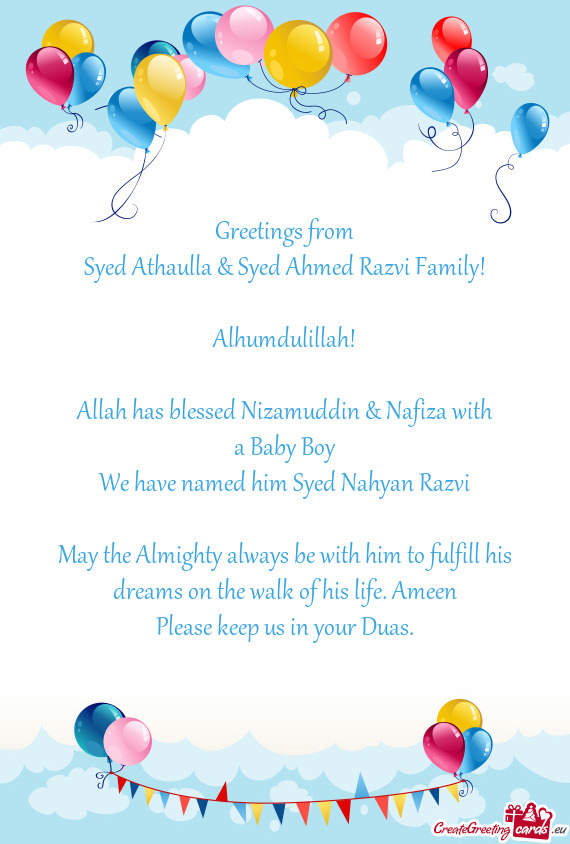 Greetings from
Syed Athaulla & Syed Ahmed Razvi Family!
Alhumdulillah!
Allah has blessed Nizamuddin & Nafiza with
a Baby Boy
We have named him Syed Nahyan Razvi
May the Almighty always be with him to fulfill his
dreams on the walk of his life. Ameen
Please keep us in your Duas.
CreateGreeting cards .eu